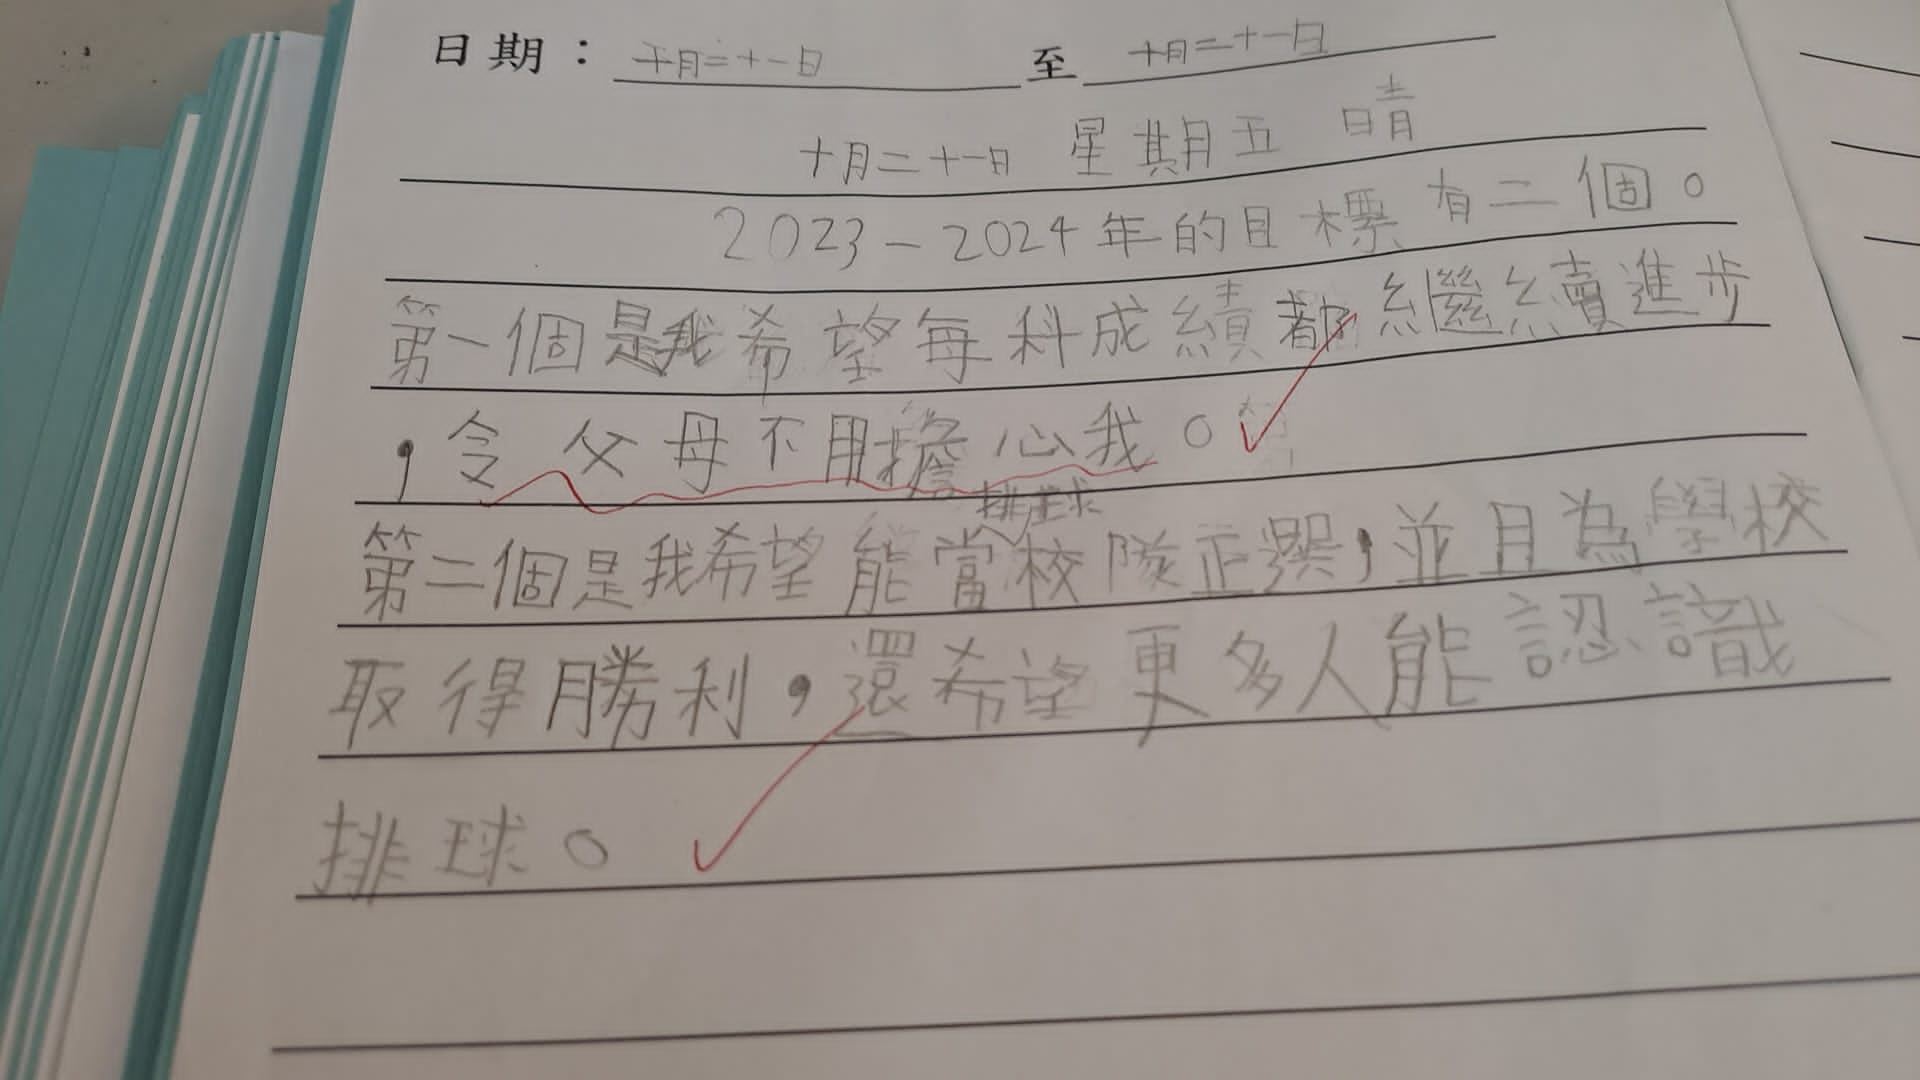 日期：十月二十一日 至 十月二十一日
十月二十一日 星期五 晴
2023－2024年的目標有二個。
第一個是我希望每科成績都繼續進步
，令父母不用擔心我。
排球
第二個是我希望能當校隊正選，並且為學校
取得勝利，還希望更多人能認識
排球。